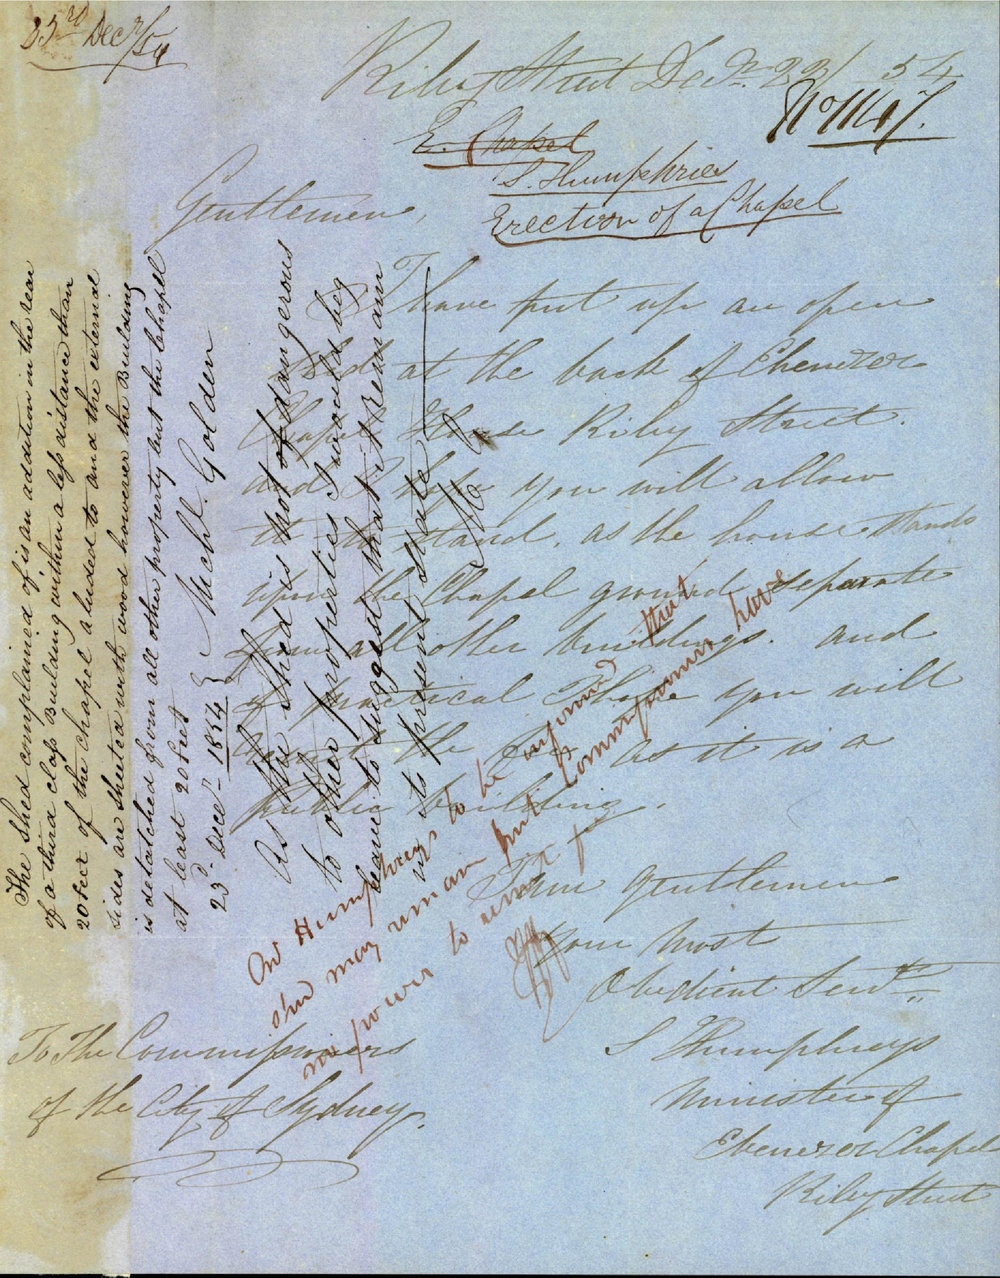 23rd Decr/54
Riley Street Decm. 23/54
No 1147.
E. Chapel
S. Humphries
Erection of a Chapel
Gentlemen,
I have put up an open
Shed at the back of Ebenezer
Chapel House Riley Street.
and I hope you will allow
it to stand, as the house stands
upon the Chapel ground, separate
from all other buildings. and
if practical I hope you will
the as it is a
public building.
I am gentlemen
your most
Obedient Servt.,
S Humphreys
Minister of
Ebenezer Chapel
Riley Street
To The Commissioners
of the City of Sydney.
The Shed complained of is an addition in the rear
of a third class Building within a less distance than
20 feet of the chapel aluded to and the external
sides are sheeted with wood however the Building
is detatched from all other property but the Chapel
at least 20 feet
23d. Decr. 1854 } Michl. Golden
As the Shed is not dangerous
to other properties I would beg
leave to suggest that it Remain
in its present state
Mr Humphreys to be informed that
she may remain but Commissioners have
no power to